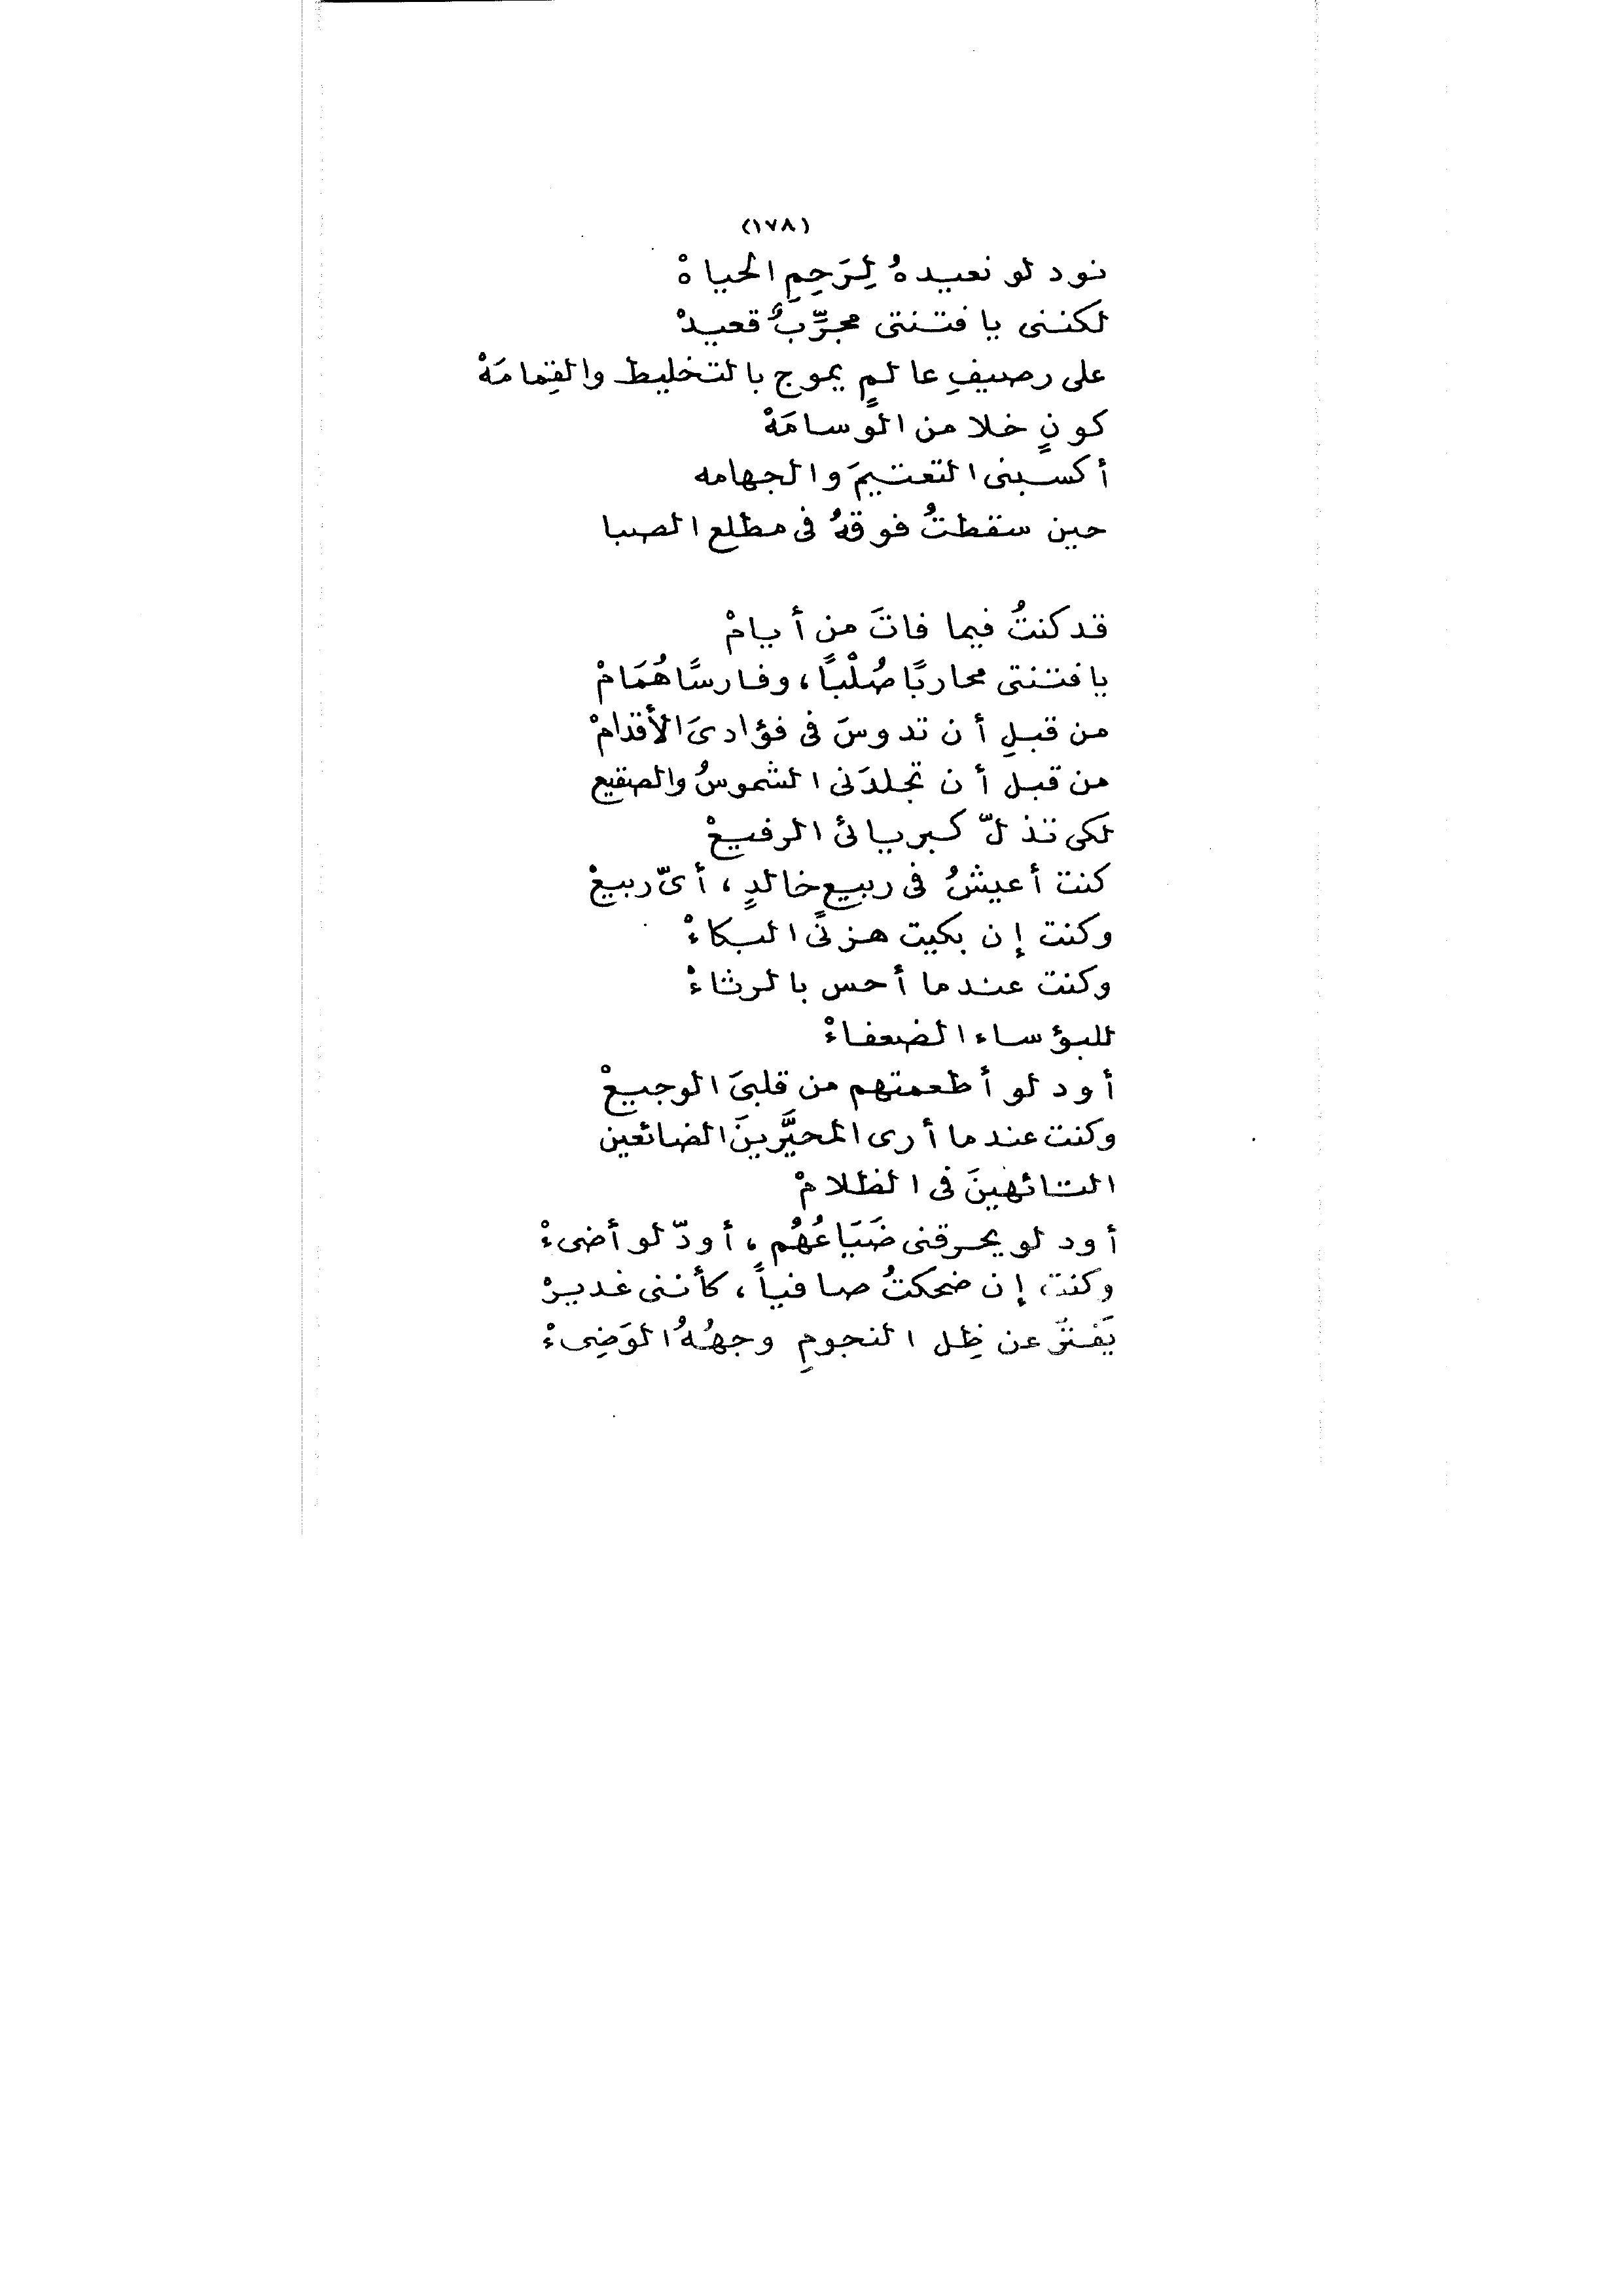 (١٧٨)
نود لو نعيدهُ لِرَحِمِ الحياهْ
لكننى يا فتنتى مجرِّبٌ قعيدْ
على رصيفِ عالمٍ يموج بالتخليط والقِمامَهْ
كونٍ خلا من الوَسامَهْ
أكسبنى التعتيمَ والجهامه
حين سقطتُ فوقهُ فى مطلع الصبا
قد كنتُ فيما فاتَ من أيامْ
يا فتنتى محاربًا صُلْبًا، وفارسًا هُمَامْ
من قبلِ أن تدوسَ فى فؤادىَ الأقدامْ
من قبل أن تجلدَنى الشموسُ والصقيع
لكى تذلّ كبريائىَ الرفيعْ
كنت أعيشُ فى ربيعٍ خالدٍ، أىّ ربيعْ
وكنت إن بكيت هزنىَ البكاءْ
وكنت عندما أحس بالرثاءْ
للبؤساء الضعفاءْ
أود لو أطعمتهم من قلبىَ الوجيعْ
وكنت عندما أرى المحيَّرينَ الضائعين
التائهينَ فى الظلامْ
أود لو يحرقنى ضَيَاعُهُم، أودّ لو أضىءْ
وكنت إن ضحكتُ صافياً، كأننى غديرْ
يَفْترّ عن ظِل النجومِ وجهُهُ الوَضِىءْ